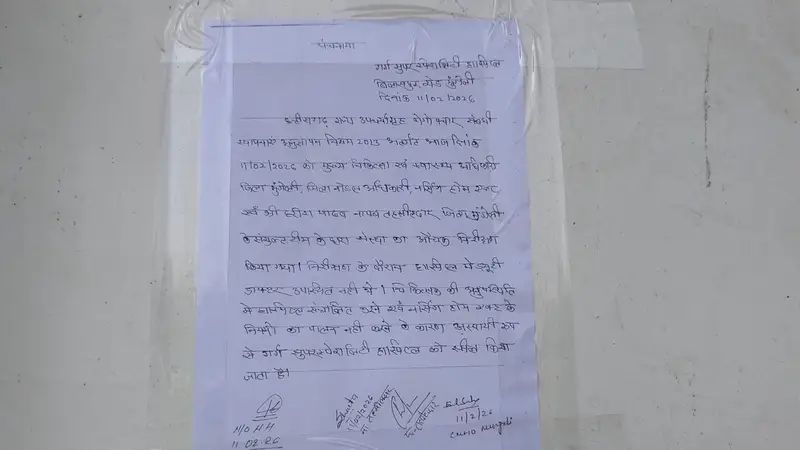 पंचनामा
गर्ग सुपर स्पेशलिटी हास्पिटल
बिलासपुर रोड मुंगेली
दिनांक 11/02/2026
छत्तीसगढ़ राज्य उपचर्यागृह रोगोपचार संबंधी
स्थापनाएं अनुज्ञापन नियम 2013 अंतर्गत आज दिनांक
11/02/2026 को मुख्य चिकित्सा एवं स्वास्थ्य अधिकारी
जिला मुंगेली, जिला नोडल अधिकारी, नर्सिंग होम एक्ट
एवं श्री हरीश यादव नायब तहसीलदार जिला मुंगेली
के संयुक्त टीम के द्वारा संस्था का औचक निरीक्षण
किया गया। निरीक्षण के दौरान हास्पिटल में ड्यूटी
डाक्टर उपस्थित नहीं थे। चिकित्सक की अनुपस्थिति
में हास्पिटल संचालित करने एवं नर्सिंग होम एक्ट के
नियमों का पालन नहीं करने के कारण अस्थायी रूप
से गर्ग सुपरस्पेशलिटी हास्पिटल को सील किया
जाता है।
N/O NH
11.02.26
11/02/2026
11/2/26
CMHO Mungeli